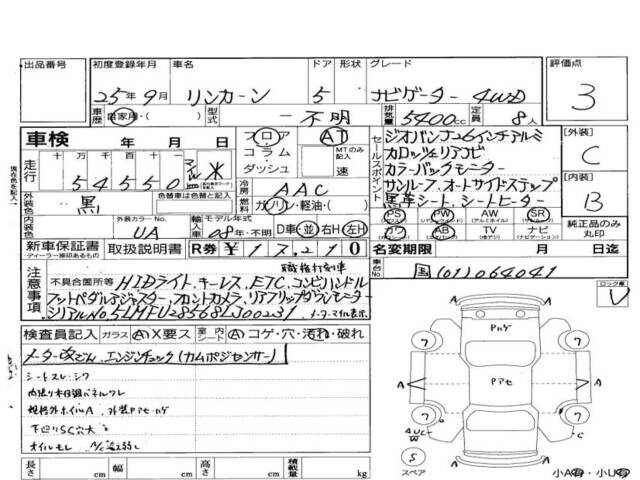 出品番号 初度登録年月 車名 ドア 形状 グレード 評価点
25年9月 リンカーン 5 ナビゲーター 4WD 3
車歴 自家用・( ) 型式 不明 排気量 5400cc 定員 8人
車検 年 月 日 フロア・コラム・ダッシュ AT MTのみ記入 速
走行 十万 万 千 百 十 54550 マイル 米
冷房 AAC
燃料 ガソリン・軽油・( )
外装色 黒 色替車は色替前色を記入
セールスポイント
ジオバンナ26インチアルミ
カロッツェリアナビ
カラーバックモーター
サンルーフ、オートサイドステップ
黒革シート、シートヒーター
【外装】 C
【内装】 B
PS PW AW SR
カワ AB TV ナビ
純正品のみ丸印
外装カラーNo. UA 輸入車 モデル年式 08年・不明 D車・並 右H・左H
新車保証書 取扱説明書 R券 ¥17,210
ディーラー捺印あるもの
名変期限 月 日迄
車台No. 国(01)064041
注意事項 不具合箇所等 職権打刻車
HIDライト キーレス ETC コンビハンドル
フットペダルアジャスター、フロントカメラ、リアフリップダウンモーター
シリアルNo.5LMFU28568LJ00231 メーターマイル表示
ロック車
検査員記入 ガラス A X要ス 室内シート A コゲ・穴・汚れ・破れ
メーター改ざん エンジンチェック(カムポジセンサー)
シートスレ・シワ
内張り本日調パネルワレ
規格外ホイルA 外装Pアセ・ハゲ
下回りSC穴大
オイルモレ A/C
Pハゲ
Pアセ
A A
7 7 7 7
A
W
C
S
スペア
長さ cm 幅 cm 高さ cm 積載量 kg
小A有・小U有